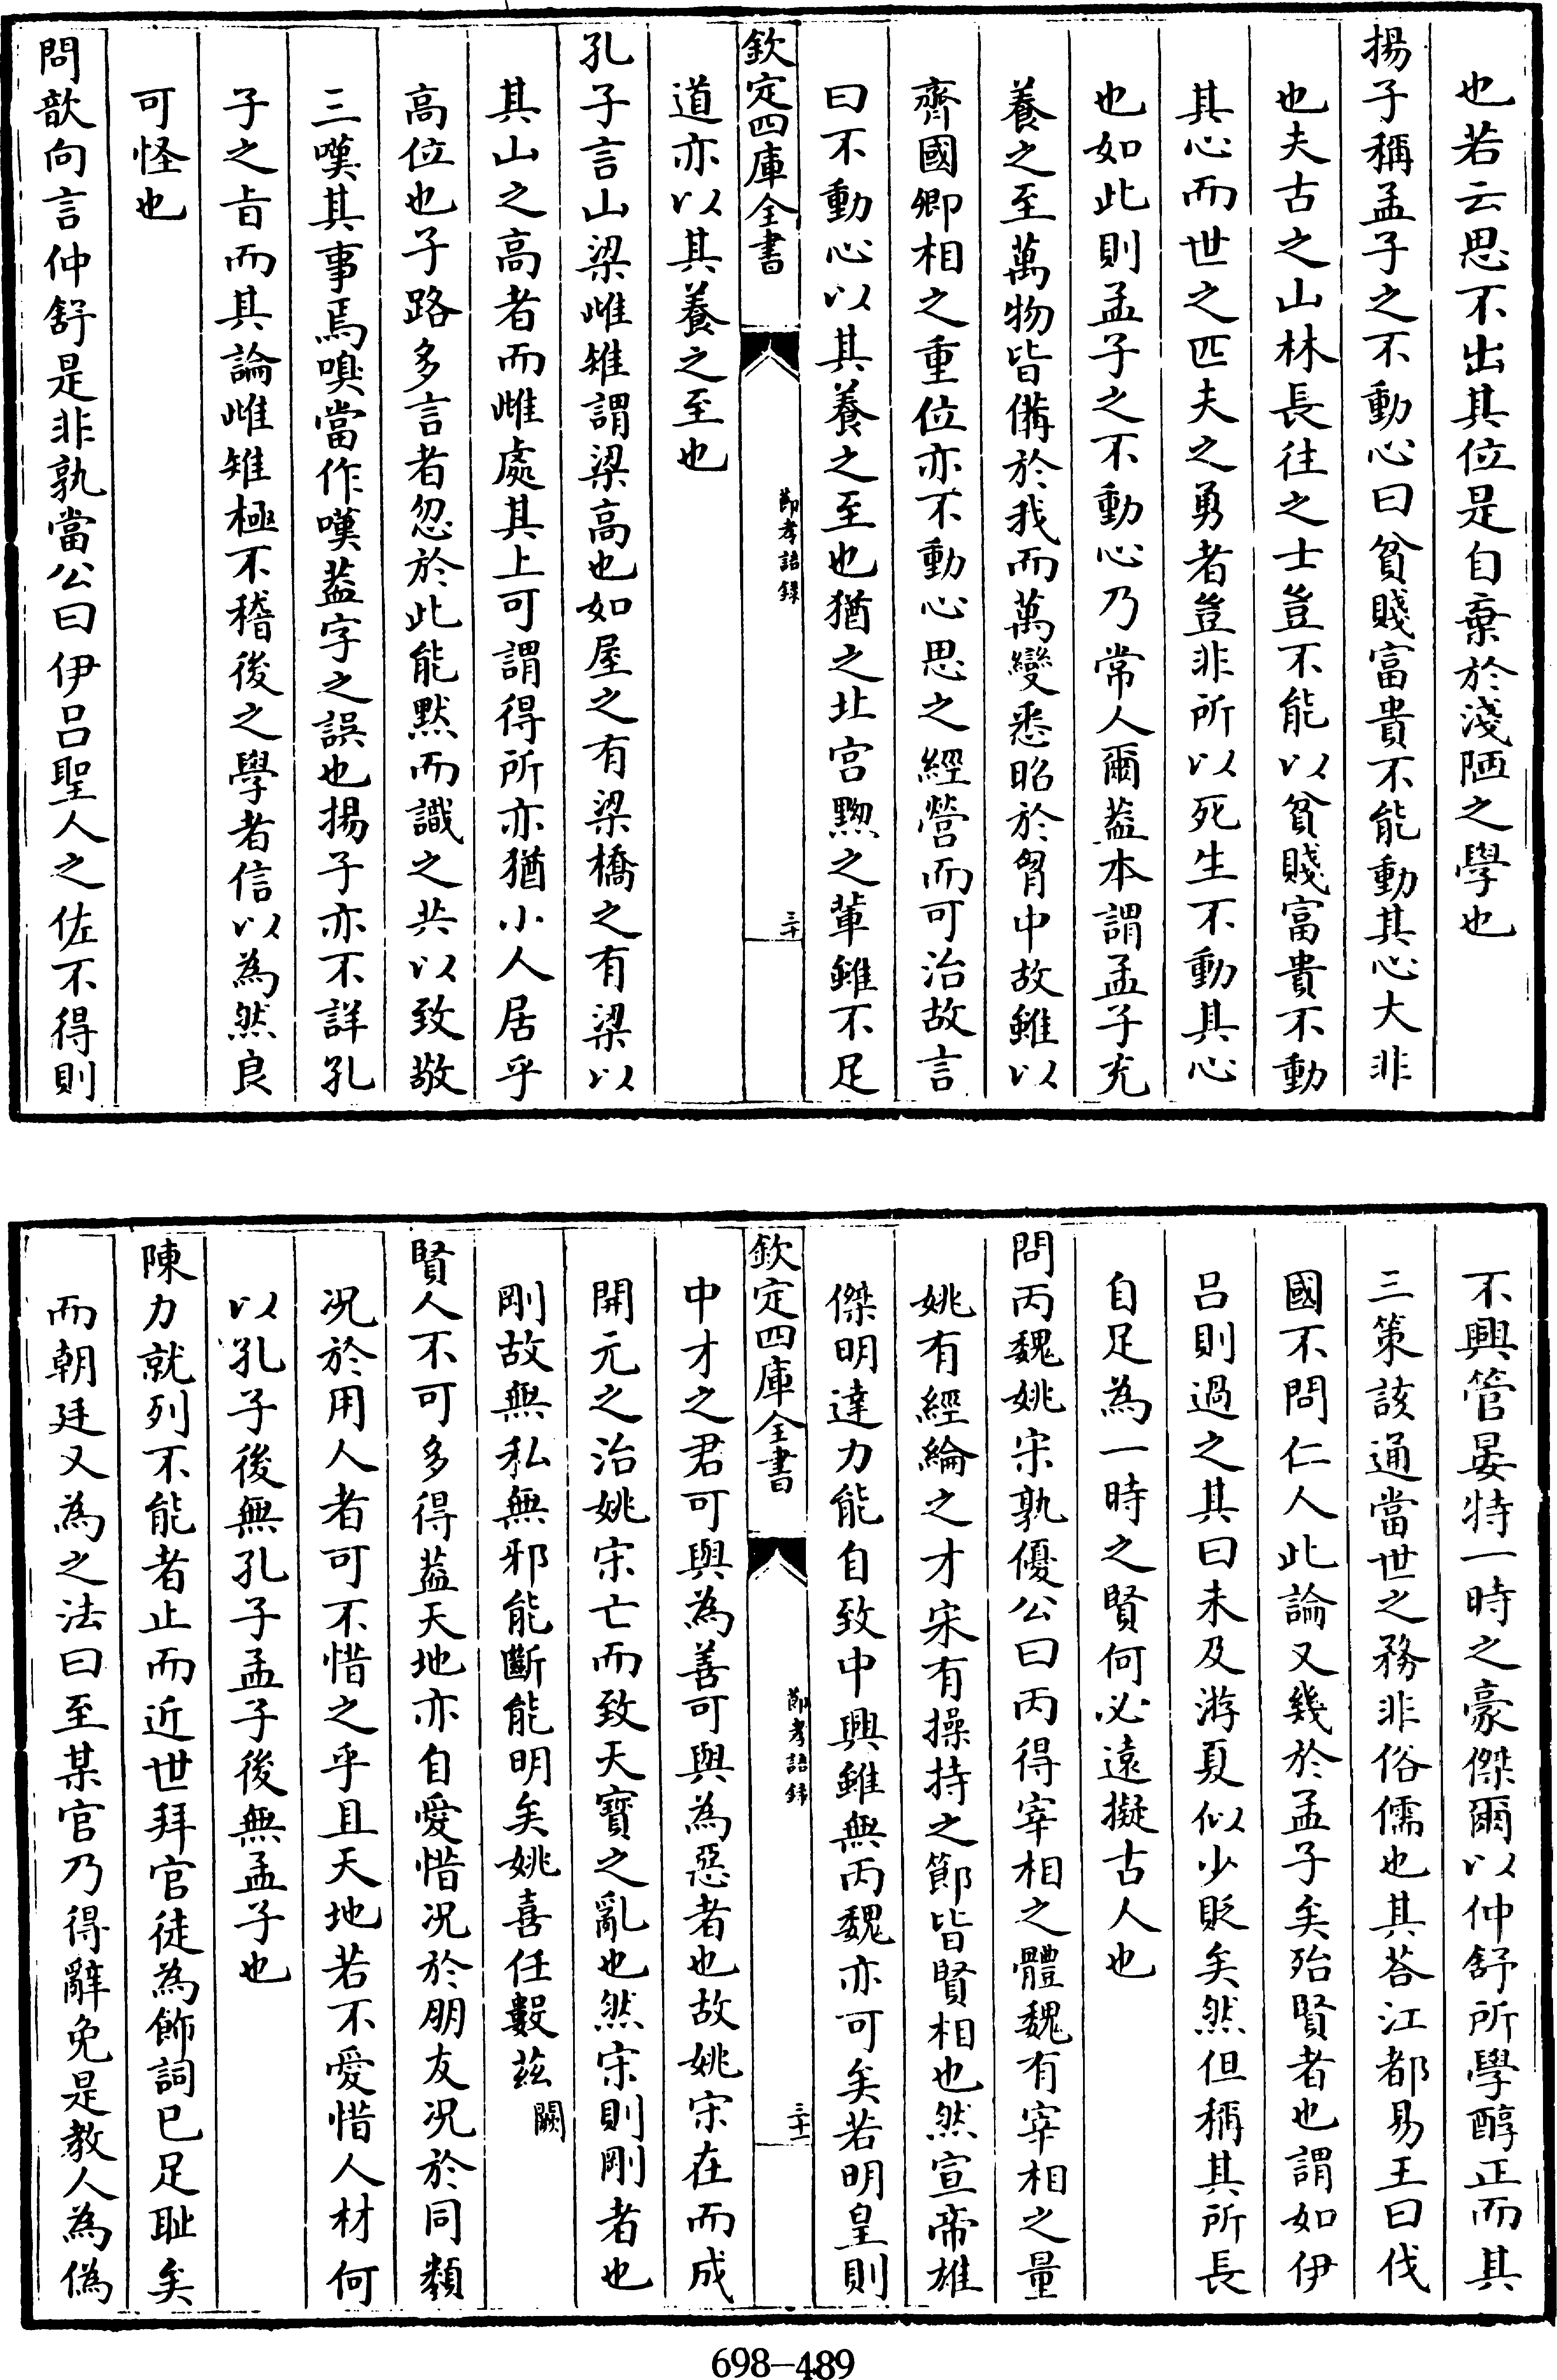 也若云思不出其位是自棄於淺陋之學也
揚子稱孟子之不動心曰貧賤富貴不能動其心大非
也夫古之山林長往之士豈不能以貧賤富貴不動
其心而世之匹夫之勇者豈非所以死生不動其心
也如此則孟子之不動心乃常人爾葢本謂孟子充
養之至萬物皆備於我而萬變悉昭於胷中故雖以
齊國卿相之重位亦不動心思之經營而可治故言
曰不動心以其養之至也猶之北宫黝之輩雖不足
欽定四庫全書
節孝語録
三十
道亦以其養之至也
孔子言山梁雌雉謂梁高也如屋之有梁橋之有梁以
其山之高者而雌處其上可謂得所亦猶小人居乎
高位也子路多言者忽於此能默而識之共以致敬
三嘆其事焉嗅當作嘆葢字之誤也揚子亦不詳孔
子之㫖而其論雌雉極不稽後之學者信以為然良
可怪也
問歆向言仲舒是非孰當公曰伊吕聖人之佐不得則
不興管晏特一時之豪傑爾以仲舒所學醇正而其
三策該通當世之務非俗儒也其荅江都易王曰伐
國不問仁人此論又幾於孟子矣殆賢者也謂如伊
吕則過之其曰未及游夏似少貶矣然但稱其所長
自足為一時之賢何必遠擬古人也
問丙魏姚宋孰優公曰丙得宰相之體魏有宰相之量
姚有經綸之才宋有操持之節皆賢相也然宣帝雄
傑明達力能自致中興雖無丙魏亦可矣若明皇則
欽定四庫全書
節孝語録
三十一
中才之君可與為善可與為惡者也故姚宋在而成
開元之治姚宋亡而致天寳之亂也然宋則剛者也
剛故無私無邪能斷能明矣姚喜任數兹闕
賢人不可多得葢天地亦自愛惜况於朋友况於同類
况於用人者可不惜之乎且天地若不愛惜人材何
以孔子後無孔子孟子後無孟子也
陳力就列不能者止而近世拜官徒為飾詞已足耻矣
而朝廷又為之法曰至某官乃得辭免是教人為偽
698-489